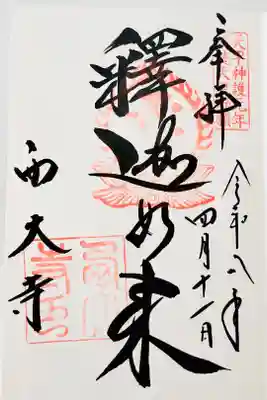 奉拝
天平神護元年
令和八年
四月十一日
釋迦如来
西大寺